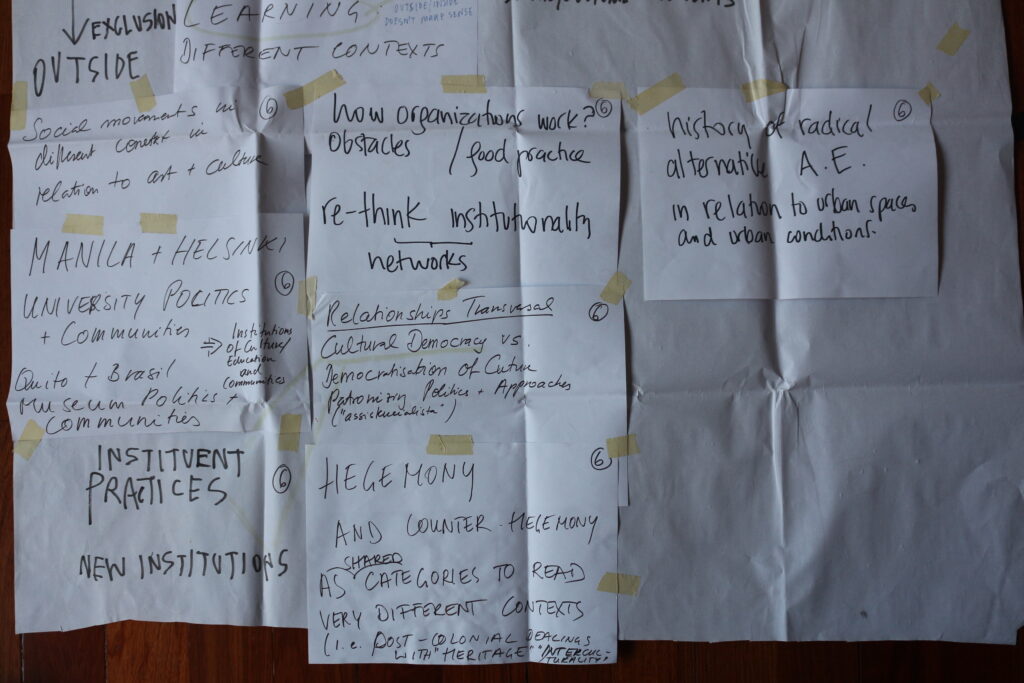 EXCLUSION
OUTSIDE
LEARNING.
OUTSIDE/INSIDE
DOESN'T MAKE SENSE
DIFFERENT CONTEXTS
Social movements in
different context in
relation to art + culture
6
MANILA + HELSINKI
6
UNIVERSITY POLITICS
+ COMMUNITIES
⇒ Institutions
of Culture/
Education
and
Communities
Quito + Brasil
MUSEUM POLITICS +
COMMUNITIES
INSTITUENT
PRACTICES
6
NEW INSTITUTIONS
how organizations work?
6
Obstacles / good practice
re-think institutionality
networks
Relationships Transversal
6
Cultural Democracy vs.
Democratisation of Culture
Patronizing Politics + Approaches
6
HEGEMONY
AND COUNTER-HEGEMONY
SHARED
AS CATEGORIES TO READ
VERY DIFFERENT CONTEXTS
(i.e. POST-COLONIAL DEALINGS
WITH "HERITAGE" "INTERCUL-
TURALITY)
history of radical
6
alternative A.E.
in relation to urban spaces
and urban conditions.